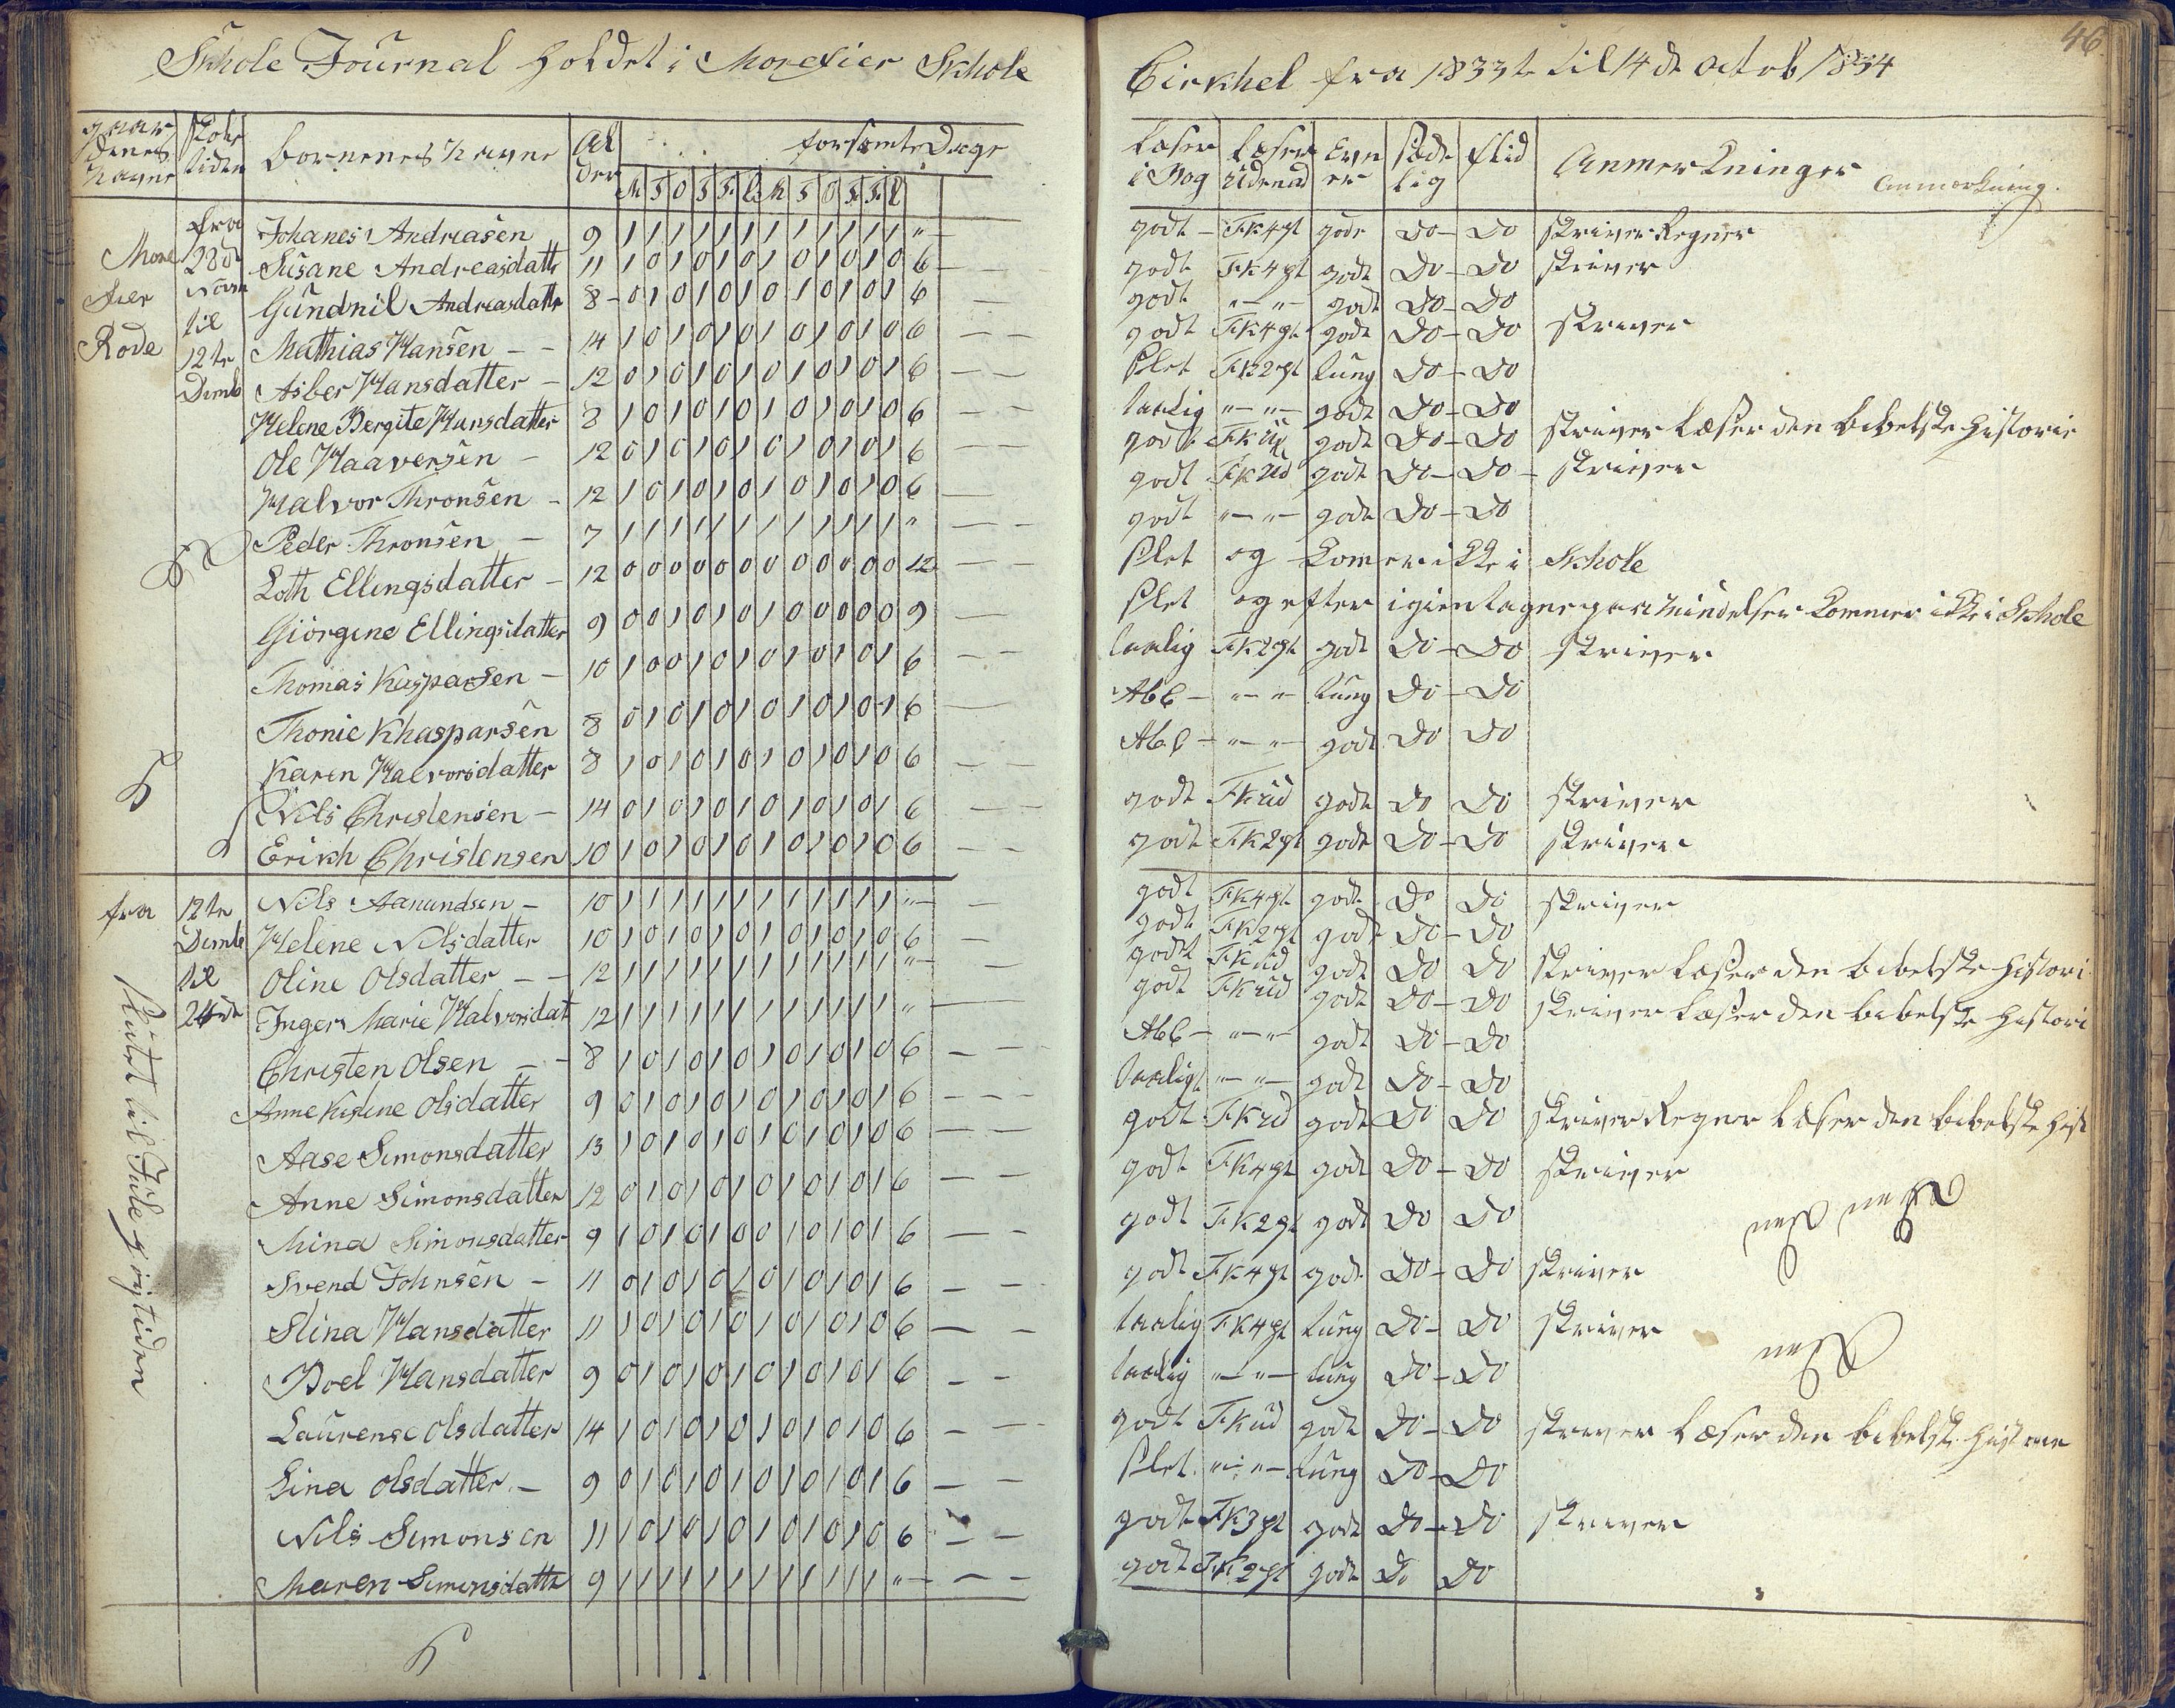 Skhole Journal holdet i Morefier Skhole
Cirkhel fra 1833te til 14de octob 1834
46.
gaardenes navne
Skole tiden
børnenes navne
Alder
forsømte Dage
M T O T F L M T O T F L
læser i Bog
læser udenad
Evner
sædelig
flid
Anmerkninger
Anmærkning.
More fier Rode
fra 28de Novm til 12te Desmb
Johanes Andreasen 9 1 1 1 1 1 1 1 1 1 1 1 1 " godt F.K 4 pt gode Do Do skriver Regner
Susane Andreasdattr 11 1 0 1 0 1 0 1 0 1 0 1 0 6 godt F.K 4 pt godt Do Do skriver
Gundnil Andreasdattr 8 0 1 0 1 0 1 0 1 0 1 0 1 6 godt " " godt Do Do
Mathias Hansen 14 1 0 1 0 1 0 1 0 1 0 1 0 6 godt F.K 4 pt godt Do Do skriver
Asber Hansdatter 12 0 1 0 1 0 1 0 1 0 1 0 1 6 slet F.K 2 pt tung Do Do
Helene Bergite Hansdatter 8 1 0 1 0 1 0 1 0 1 0 1 0 6 taalig " " godt Do Do
Ole Haaversen 12 0 1 0 1 0 1 0 1 0 1 0 1 6 godt F.K ud godt Do Do skriver læser den bibelske historie
Halvor Thronsen 12 1 0 1 0 1 0 1 0 1 0 1 0 6 godt F.K ud godt Do Do skriver
Peder Thronsen 7 1 1 1 1 1 1 1 1 1 1 1 1 " godt " " godt Do Do
Loth Ellingsdatter 12 0 0 0 0 0 0 0 0 0 0 0 0 12 slet og komer ikke i Skhole
Giorgine Ellingsdatter 9 0 0 1 0 1 0 1 0 0 0 0 0 9 slet og efter igientagne paamindelser kommer ikke i Skhole
Thomas Kasparsen 10 1 0 0 1 0 1 0 1 0 1 0 1 6 taalig F.K 2 pt godt Do Do skriver
Thonie Khasparsen 8 0 1 0 1 0 1 0 1 0 1 0 1 6 Abc " " tung Do Do
Karen Halvorsdatter 8 1 0 1 0 1 0 1 0 1 0 1 0 6 Abc " " godt Do Do
Nils Christensen 14 0 1 0 1 0 1 0 1 0 1 0 1 6 godt F.K ud godt Do Do skriver
Erikh Christensen 10 1 0 1 0 1 0 1 0 1 0 1 0 6 godt F.K 2 pt godt Do Do skriver
fra 12te Desmb til 24de
sluttet til Jule høytiden
Nils Aanundsen 10 1 1 1 1 1 1 1 1 1 1 1 1 " godt F.K 4 pt godt Do Do skriver
Helene Nilsdatter 10 1 0 1 0 1 0 1 0 1 0 1 0 6 godt F.K 2 pt godt Do Do
Oline Olsdatter 12 1 1 1 1 1 1 1 1 1 1 1 1 " godt F.K ud godt Do Do skriver læser den bibelske histori
Inger Marie Halvorsdat 12 1 1 1 1 1 1 1 1 1 1 1 1 " godt F.K ud godt Do Do skriver læser den bibelske histori
Christen Olsen 8 1 0 1 0 1 0 1 0 1 0 1 0 6 Abc " " godt Do Do
Anne Kistine Olsdatter 9 0 1 0 1 0 1 0 1 0 1 0 1 6 taaligt " " godt Do Do
Aase Simonsdatter 13 1 0 1 0 1 0 1 0 1 0 1 0 6 godt F.K ud godt Do Do skriver Regner læser den bibelske hist
Anne Simonsdatter 12 0 1 0 1 0 1 0 1 0 1 0 1 6 godt F.K 4 pt godt Do Do skriver
Mina Simonsdatter 9 1 0 1 0 1 0 0 1 0 1 0 1 6 godt F.K 2 pt godt Do Do
Svend Johnsen 11 0 1 0 1 0 1 0 1 0 1 0 1 6 godt F.K 4 pt godt Do Do skriver
Stina Hansdatter 11 1 0 1 0 1 0 1 0 1 0 1 0 6 taalig F.K 4 pt tung Do Do skriver
Boel Hansdatter 9 0 1 0 1 0 1 0 1 0 1 0 1 6 taalig " " tung Do Do
Laurense Olsdatter 14 1 0 1 0 1 0 1 0 1 0 1 0 6 godt F.K ud godt Do Do skriver læser den bibelsk. historie
Lina Olsdatter 9 0 1 0 1 0 1 0 1 0 1 0 1 6 slet " " tung Do Do
Nils Simonsen 11 1 0 1 0 1 0 1 0 1 0 1 0 6 godt F.K 3 pt godt Do Do skriver
Maren Simonsdattr 9 1 1 1 1 1 1 1 1 1 1 1 1 " godt F.K 2 pt godt Do Do